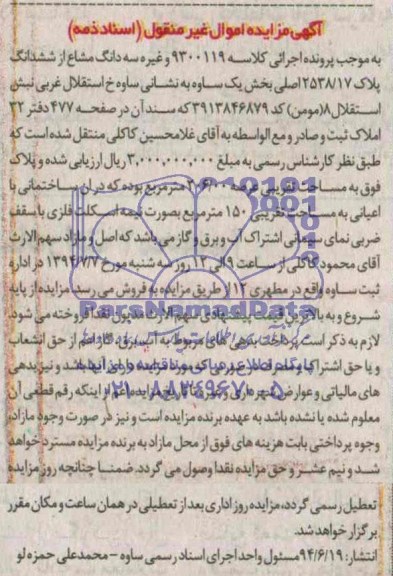 آگهی مزایده اموال غیر منقول (اسناد ذمه)
به موجب پرونده اجرائی کلاسه ۹۳۰۰۱۱۹ و غیره سه دانگ مشاع از ششدانگ
پلاک ۲۵۳۸/۱۷ اصلی بخش یک ساوه به نشانی ساوه خ استقلال غربی نبش
استقلال ۸(مومن) کد ۳۹۱۳۸۴۶۸۷۹ که سند آن در صفحه ۴۷۷ دفتر ۳۲
املاک ثبت و صادر و مع الواسطه به آقای غلامحسین کاکلی منتقل شده است که
طبق نظر کارشناس رسمی به مبلغ ۳,۰۰۰,۰۰۰,۰۰۰ ریال ارزیابی شده و پلاک
فوق به مساحت تقریبی عرصه ۳۰۶/۰۰ مترمربع بوده که در آن ساختمانی با
اعیانی به مساحت تقریبی ۱۵۰ مترمربع بصورت نیمه اسکلت فلزی با سقف
ضربی نمای سیمانی اشتراک آب و برق و گاز می باشد که اصل و مازاد سهم الارث
آقای محمود کاکلی از ساعت ۹ الی ۱۲ روز سه شنبه مورخ ۱۳۹۴/۷/۷ در اداره
ثبت ساوه واقع در مطهری ۱۲ از طریق مزایده به فروش می رسد. مزایده از پایه
شروع و به بالاترین قیمت پیشنهادی نقدا فروخته می شود.
لازم به ذکر است پرداخت بدهی های مربوط به آب، برق، گاز اعم از حق انشعاب
و یا حق اشتراک و مصرف در صورتی که مورد مزایده دارای آنها باشد و نیز بدهی
های مالیاتی و عوارض شهرداری و غیره تا تاریخ مزایده اعم از اینکه رقم قطعی آن
معلوم شده یا نشده باشد به عهده برنده مزایده است و نیز در صورت وجود مازاد،
وجوه پرداختی بابت هزینه های فوق از محل مازاد به برنده مزایده مسترد خواهد
شد و نیم عشر و حق مزایده نقدا وصول می گردد. ضمنا چنانچه روز مزایده
تعطیل رسمی گردد، مزایده روز اداری بعد از تعطیلی در همان ساعت و مکان مقرر
برگزار خواهد شد.
انتشار: ۹۴/۶/۱۹ مسئول واحد اجرای اسناد رسمی ساوه - محمدعلی حمزه لو
ParsNamadData
۰۲۱-۸۸۳۴۹۶۷۰-۵